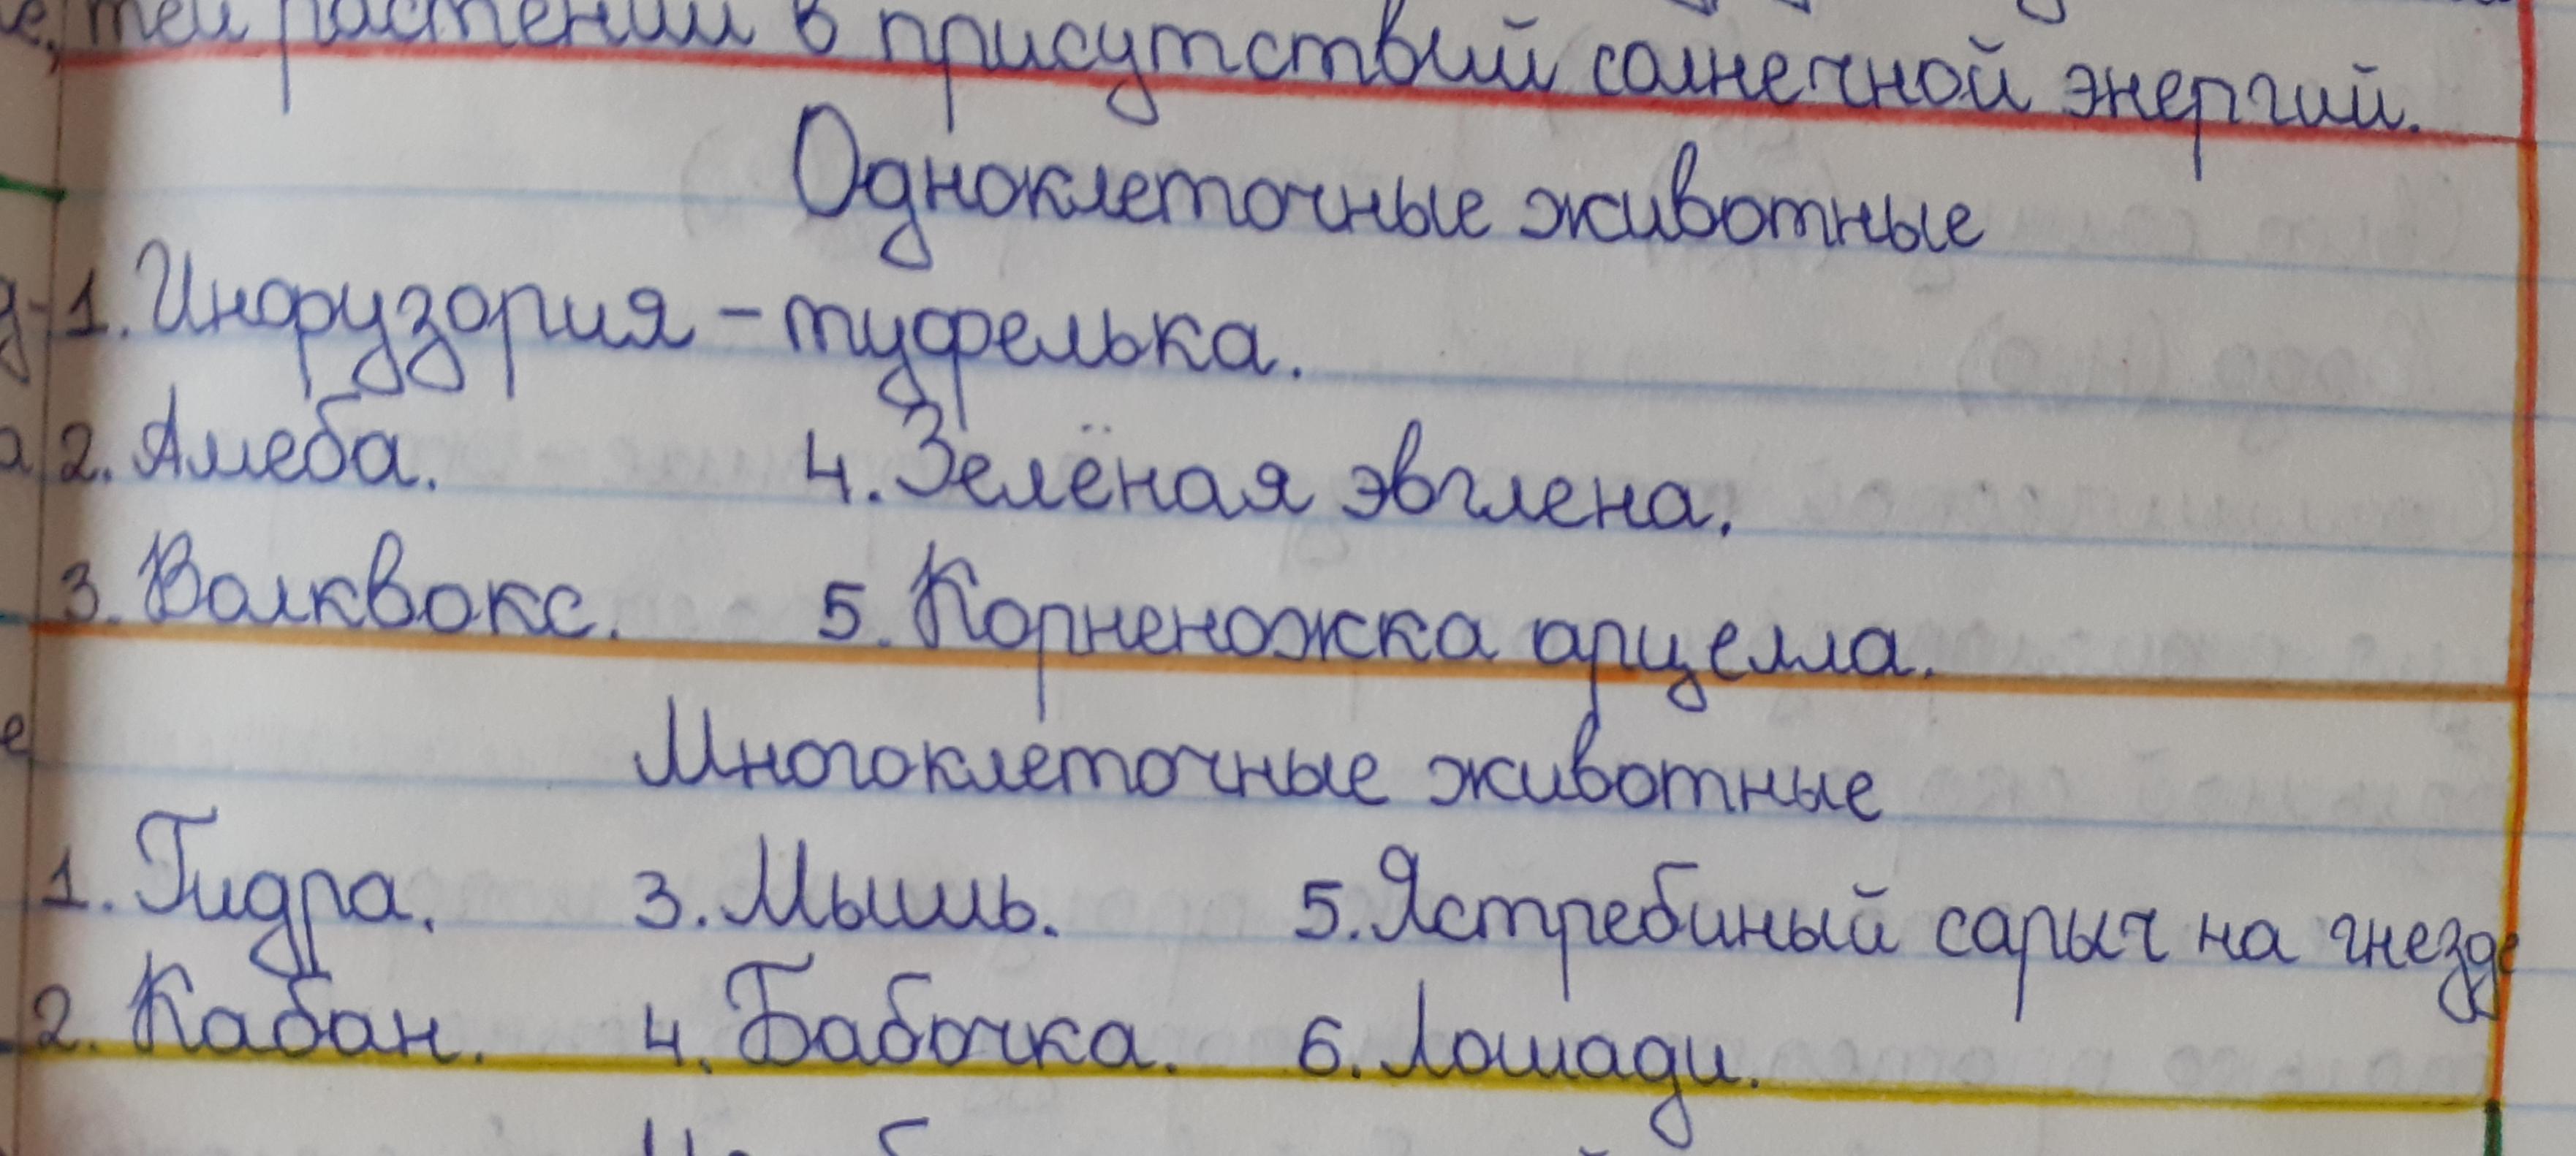 тел растений в присутствий солнечной энергий.
Одноклеточные животные
1. Инфузория - туфелька.
2. Амеба. 4. Зелёная эвглена.
3. Волквокс. 5. Корненожка арцелла.
Многоклеточные животные
1. Гидра. 3. Мышь. 5. Ястребиный сарыч на гнезде
2. Кабан. 4. Бабочка. 6. Лошади.